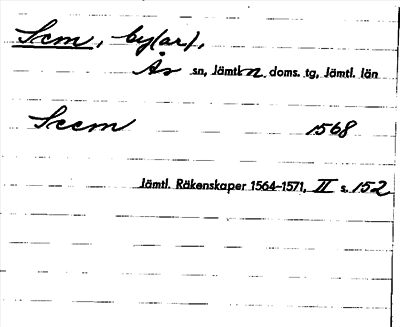 Sem, by(ar),
Ås sn, Jämtl. n. doms. tg, Jämtl. län
Seem 1568
Jämtl. Räkenskaper 1564-1571, II s. 152